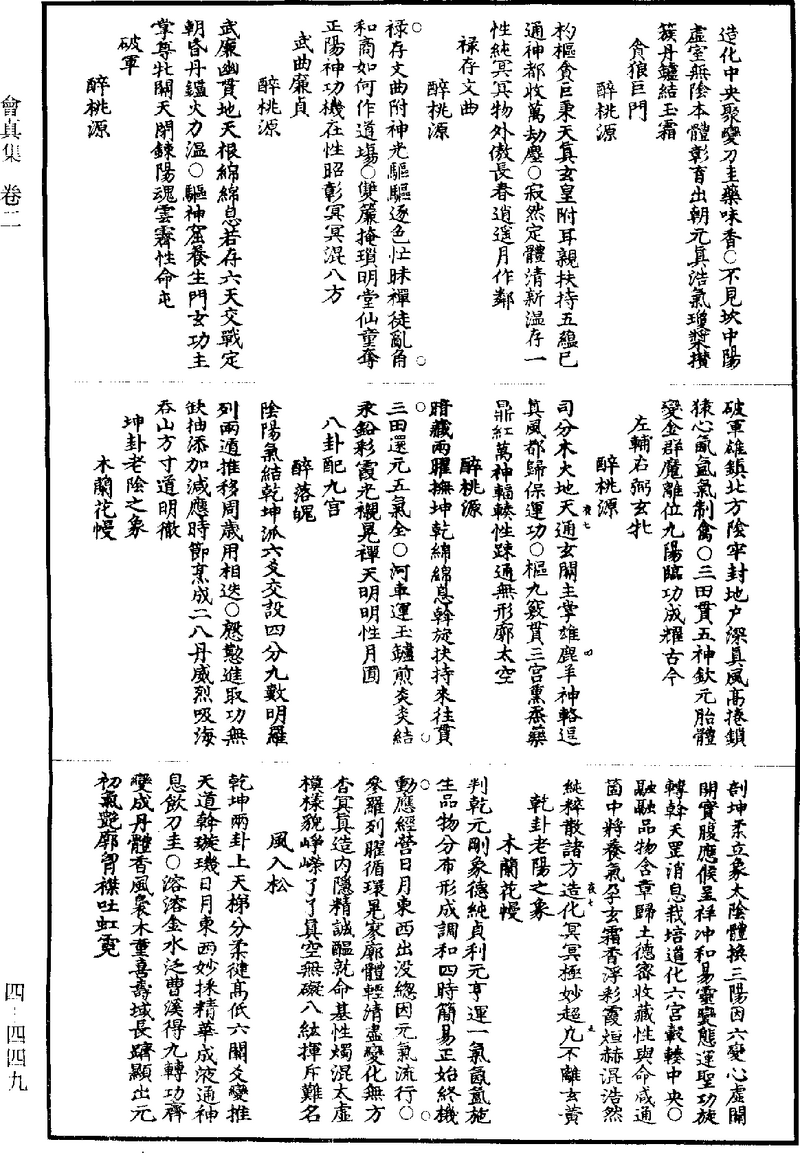 會真集　卷二
造化中央聚變刀圭藥味香○不見坎中陽
虛室無陰本體彰育出朝元真浩氣瓊漿攢
簇丹鑪結玉霜
貪狼巨門
醉桃源
杓樞貪巨秉天真玄皇附耳親扶持五蘊已
通神都收萬劫塵○寂然定體清新溫存一
性純冥冥物外傲長春逍遙月作鄰
祿存文曲
醉桃源
祿存文曲附神光驅驅逐色忙昧禪徒亂角
和商如何作道場○雙簾掩瑣明堂仙童奪
正陽神功機在性昭彰冥冥混八方
武曲廉貞
醉桃源
武廉幽貫地天根綿綿息若存六天交戰定
朝昏丹鑪火力溫○驅神窟養生門玄功主
掌尊牝關天閉鍊陽魂雲霽性命屯
破軍
醉桃源
破軍雄鎮北方陰牢封地户深真風高捲鎖
猿心氤氳氣制禽○三田貫五神欽元胎體
變金群魔離位九陽臨功成耀古今
左輔右弼玄牝
醉桃源
司分木火地天通玄關主掌雄鹿羊神輅逞
真風都歸保運功○樞九竅貫三宮熏烝藥
鼎紅萬神輻輳性踈通無形廓太空
醉桃源
暗藏兩曜撫坤乾綿綿息斡旋扶持來往貫
三田還元五氣全○河車運玉鑪煎炎炎結
汞鉛彩霞光襯晃禪天明明性月圓
八卦配九宮
醉落魄
陰陽氣結乾坤派六爻交設四分九數明羅
列兩遁推移周歲用相迭○慇懃進取功無
缺抽添加減應時節烹成二八丹威烈吸海
吞山方寸道明徹
坤卦老陰之象
木蘭花慢
剖坤柔立象太陰體撰三陽因六變心虛開
開實腹應候呈祥冲和易靈變態運聖功旋
轉斡天罡消息栽培造化六宮轂輳中央○
融融品物含章歸土德密收藏性與命咸通
箇中將養氣孕玄霜香浮彩霞烜赫混浩然
純粹散諸方造化冥冥極妙超凢不離玄黃
乾卦老陽之象
木蘭花慢
判乾元剛象德純貞利元亨運一氣氤氳施
生品物分布形成調和四時簡易正始終機
動應經營日月東西出没總因元氣流行○
參羅列曜循環晃家廓體輕清盡變化無方
杳冥真造内隱精誠醞就命基性燭混太虛
模樣貌崢嶸了了真空無礙八紘揮斥難名
風入松
乾坤兩卦上天梯分柔徤高低六關爻變推
天道斡璇璣日月東西妙採精華成液通神
息飲刀圭○溶溶金水泛曹溪得九轉功齊
變成丹體香風裊木童喜壽域長躋顯出元
初氣艷廓胷襟吐虹霓
四-四四九